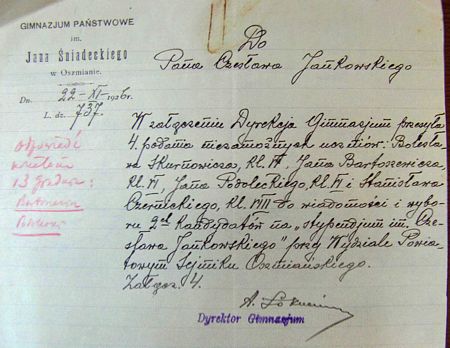 GIMNAZJUM PAŃSTWOWE
im.
Jana Śniadeckiego
w Oszmianie.
Dn. 22-XI-1926 r.
L. dz. 737.
Do
Pana Czesława Jankowskiego
W załączeniu Dyrekcja Gimnazjum przesyła
4 podania niezamożnych uczniów: Bolesła-
wa Skurnowicza, kl. IV, Jana Bartoszewicza
kl. VI, Jana Podoleckiego, kl. VI i Stanisława
Czernickiego, kl. VIII do wiadomości i wybo-
ru 2ch kandydatów na "stypendjum im. Cze-
sława Jankowskiego" przy Wydziale Powia-
towym Sejmiku Oszmiańskiego.
Załącz. 4.
odpowiedź
13 grudnia:
Dyrektor Gimnazjum